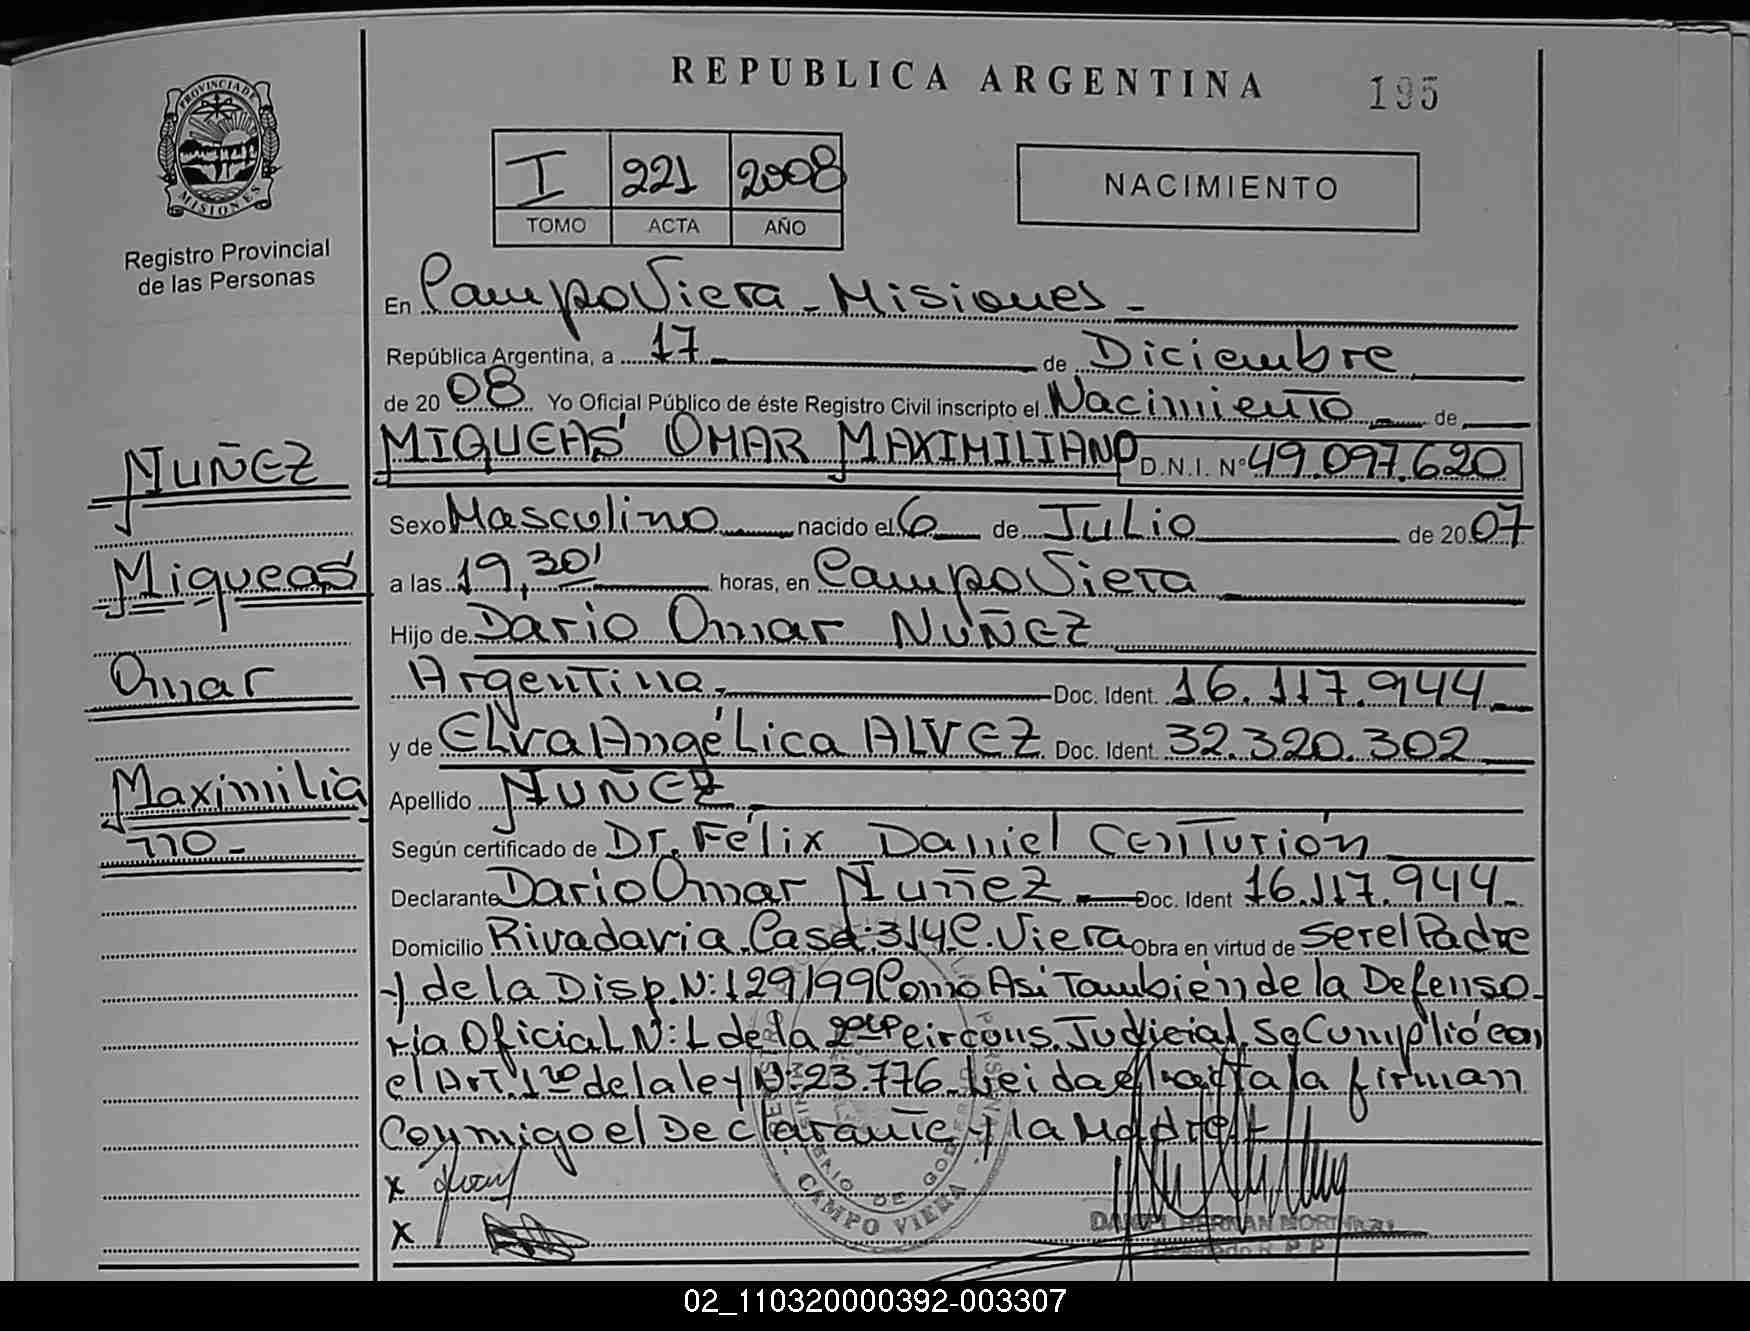 REPUBLICA ARGENTINA
195
PROVINCIA DE
MISIONES
Registro Provincial
de las Personas
I 221 2008
TOMO ACTA AÑO
NACIMIENTO
En Campo Viera - Misiones -
República Argentina, a 17 de Diciembre
de 20 08 Yo Oficial Público de éste Registro Civil inscripto el Nacimiento de
MIQUEAS OMAR MAXIMILIANO D.N.I. Nº 49.097.620
NUÑEZ
Miqueas
Omar
Maximilia
no-
Sexo Masculino nacido el 6 de Julio de 20 07
a las 19,30' horas, en Campo Viera
Hijo de Dario Omar NUÑEZ
Argentina. Doc. Ident. 16.117.944
y de Elva Angélica ALVEZ Doc. Ident. 32.320.302
Apellido NUÑEZ
Según certificado de Dr. Félix Daniel Centurión
Declarante Dario Omar Nuñez Doc. Ident 16.117.944.
Domicilio Rivadavia Casa: 314 C. Viera Obra en virtud de Ser el Padre
y de la Disp. N: 129/99 Como Asi También de la Defenso-
ría Oficial N: 1 de la 2da circuns. Judicial. Se Cumplió con
el Art. 1ro de la ley N: 23.776. Leida el acta la firman
Conmigo el Declarante y la Madre
x
x
CAMPO VIERA
MINISTERIO DE GOB
02_110320000392-003307